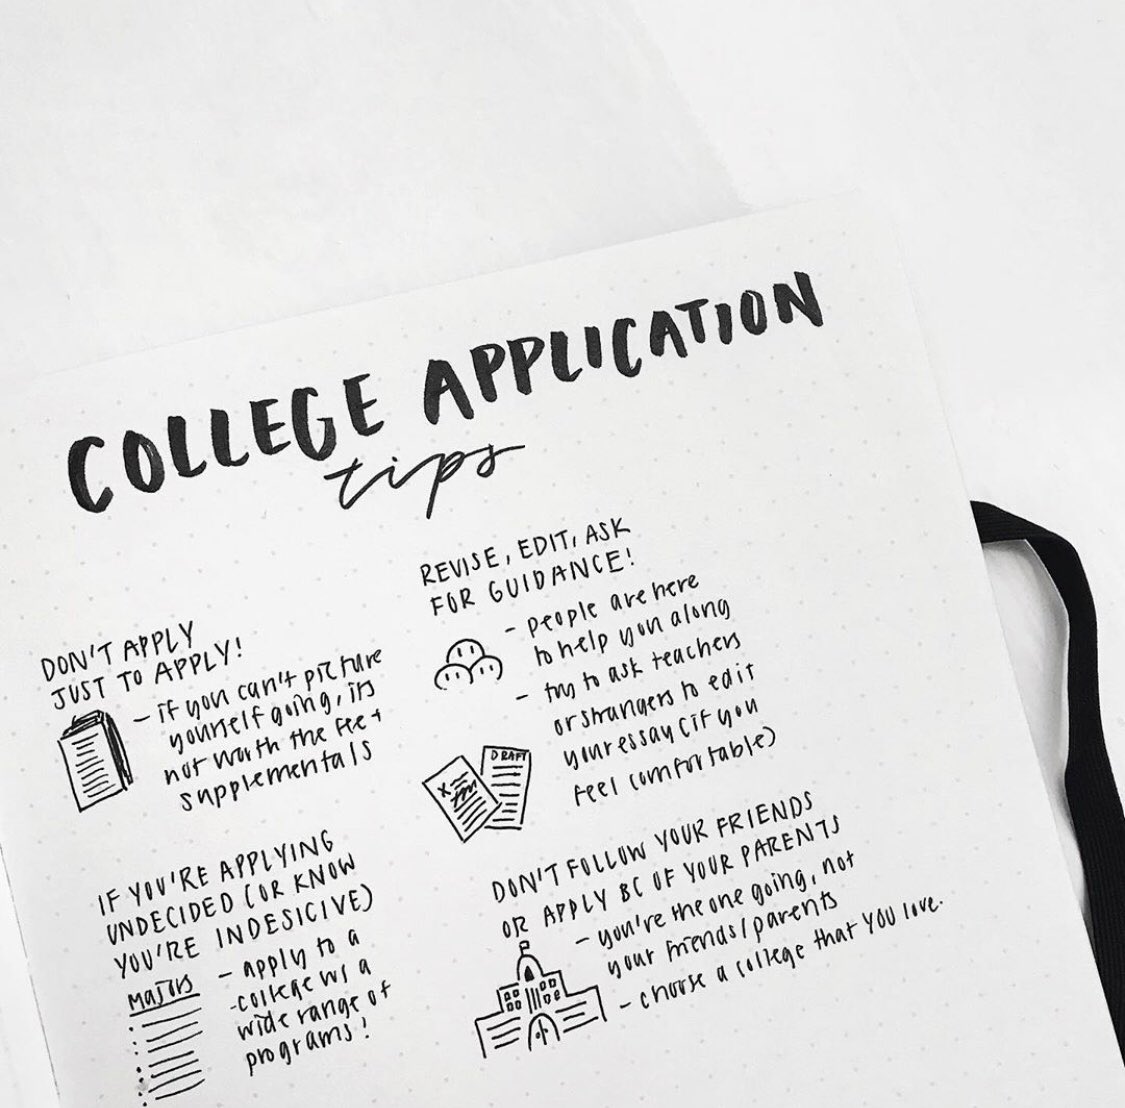 COLLEGE APPLICATION
tips
DON'T APPLY
JUST TO APPLY!
- if you can't picture
yourself going, its
not worth the fee +
supplementals
IF YOU'RE APPLYING
UNDECIDED (OR KNOW
YOU'RE INDESICIVE)
Majors
- apply to a
-college w/ a
wide range of
programs!
REVISE, EDIT, ASK
FOR GUIDANCE!
- people are here
to help you along
- try to ask teachers
or strangers to edit
your essay (if you
feel comfortable)
DRAFT
DON'T FOLLOW YOUR FRIENDS
OR APPLY BC OF YOUR PARENTS
- you're the one going, not
your friends/parents
- choose a college that YOU love.